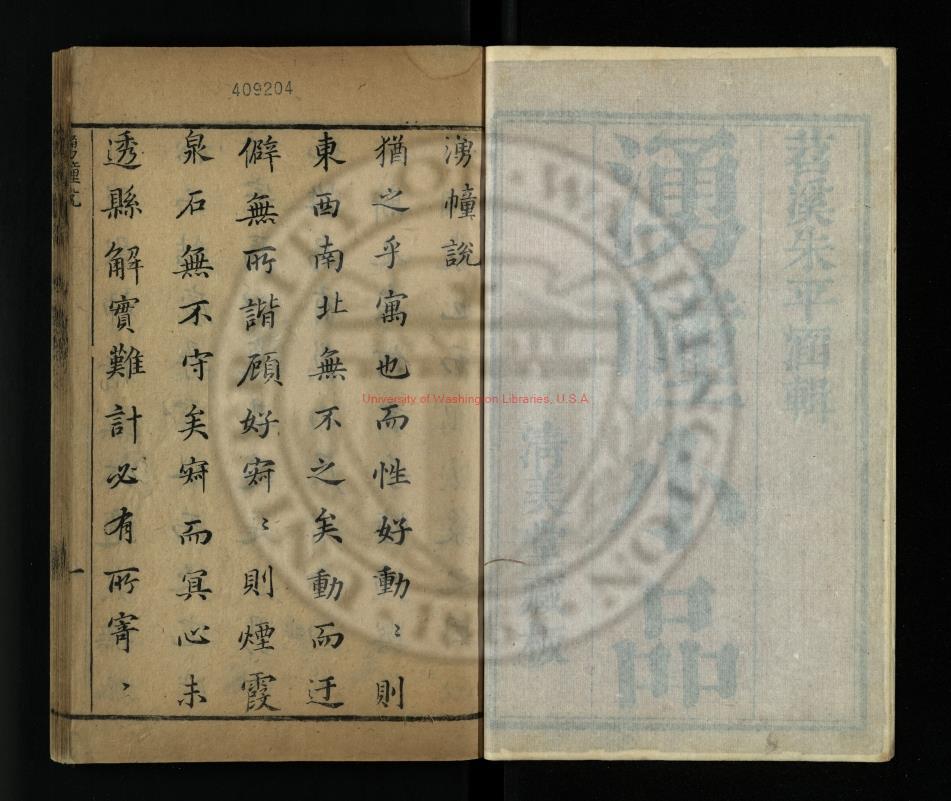 苕溪朱平涵輯
湧幢小品
清美堂藏板
湧幢說
猶之乎寓也而性好動〻則
東西南北無不之矣動而迂
僻無所諧顧好𡨋〻則煙霞
泉石無不守矣𡨋而冥心未
透縣解實難計必有所寄〻
湧幢說
一
409204
University of Washington Libraries, U.S.A